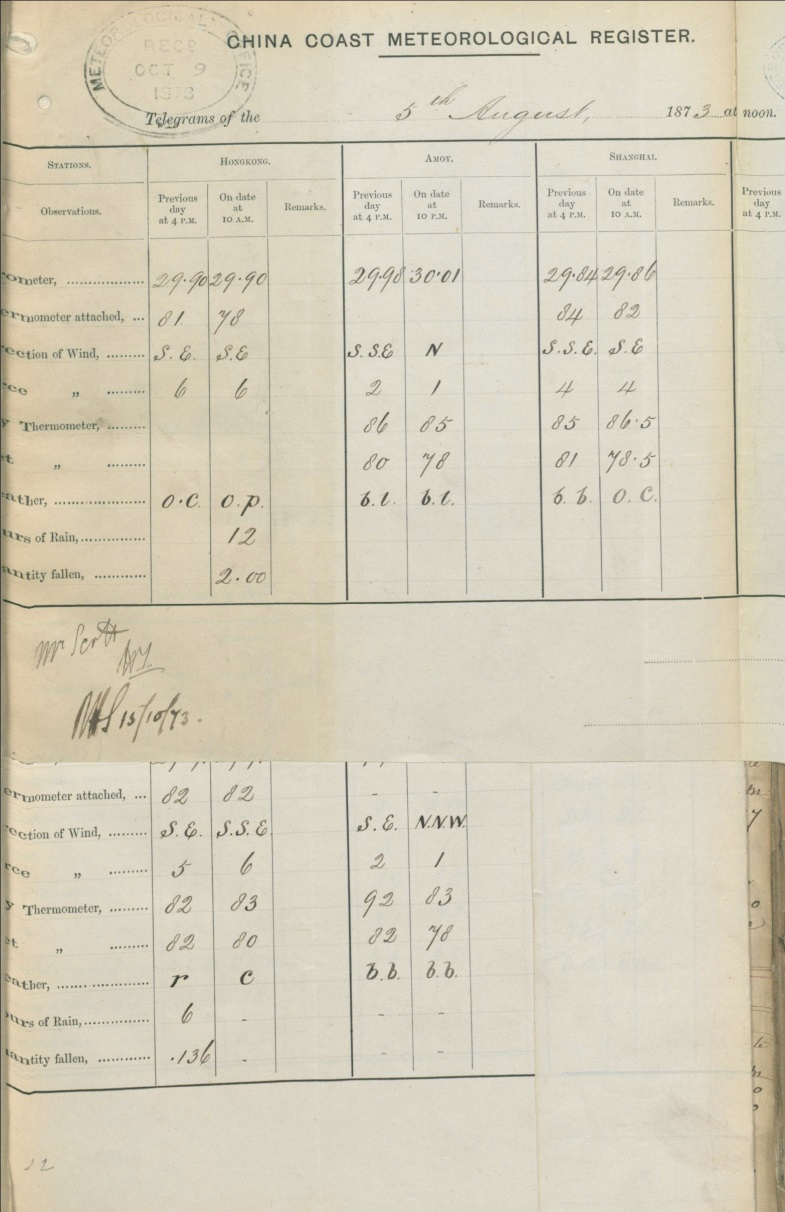 METEOROLOGICAL OFFICE
RECD
OCT 9
1873
CHINA COAST METEOROLOGICAL REGISTER.
Telegrams of the 5th August, 1873 at noon.
STATIONS. HONGKONG. AMOY. SHANGHAI.
Observations. Previous day at 4 P.M. On date at 10 A.M. Remarks. Previous day at 4 P.M. On date at 10 P.M. Remarks. Previous day at 4 P.M. On date at 10 A.M. Remarks. Previous day at 4 P.M.
ometer, 29.90 29.90 29.98 30.01 29.84 29.86
ermometer attached, ... 81 78 84 82
ection of Wind, S.E. S.E S.S.E N S.S.E. S.E
rce „ 6 6 2 1 4 4
y Thermometer, 86 85 85 86.5
t „ 80 78 81 78.5
ather, O.C. O.p. b.l. b.l. b.b. O.C.
urs of Rain, 12
antity fallen, 2.00
Mr Scott
13/10/73.
ermometer attached, ... 82 82 - -
ection of Wind, S.E. S.S.E S.E. N.N.W.
rce „ 5 6 2 1
y Thermometer, 82 83 92 83
et „ 82 80 82 78
ather, r c b.b. b.b.
urs of Rain, 6 - - -
antity fallen, .136 - - -
12